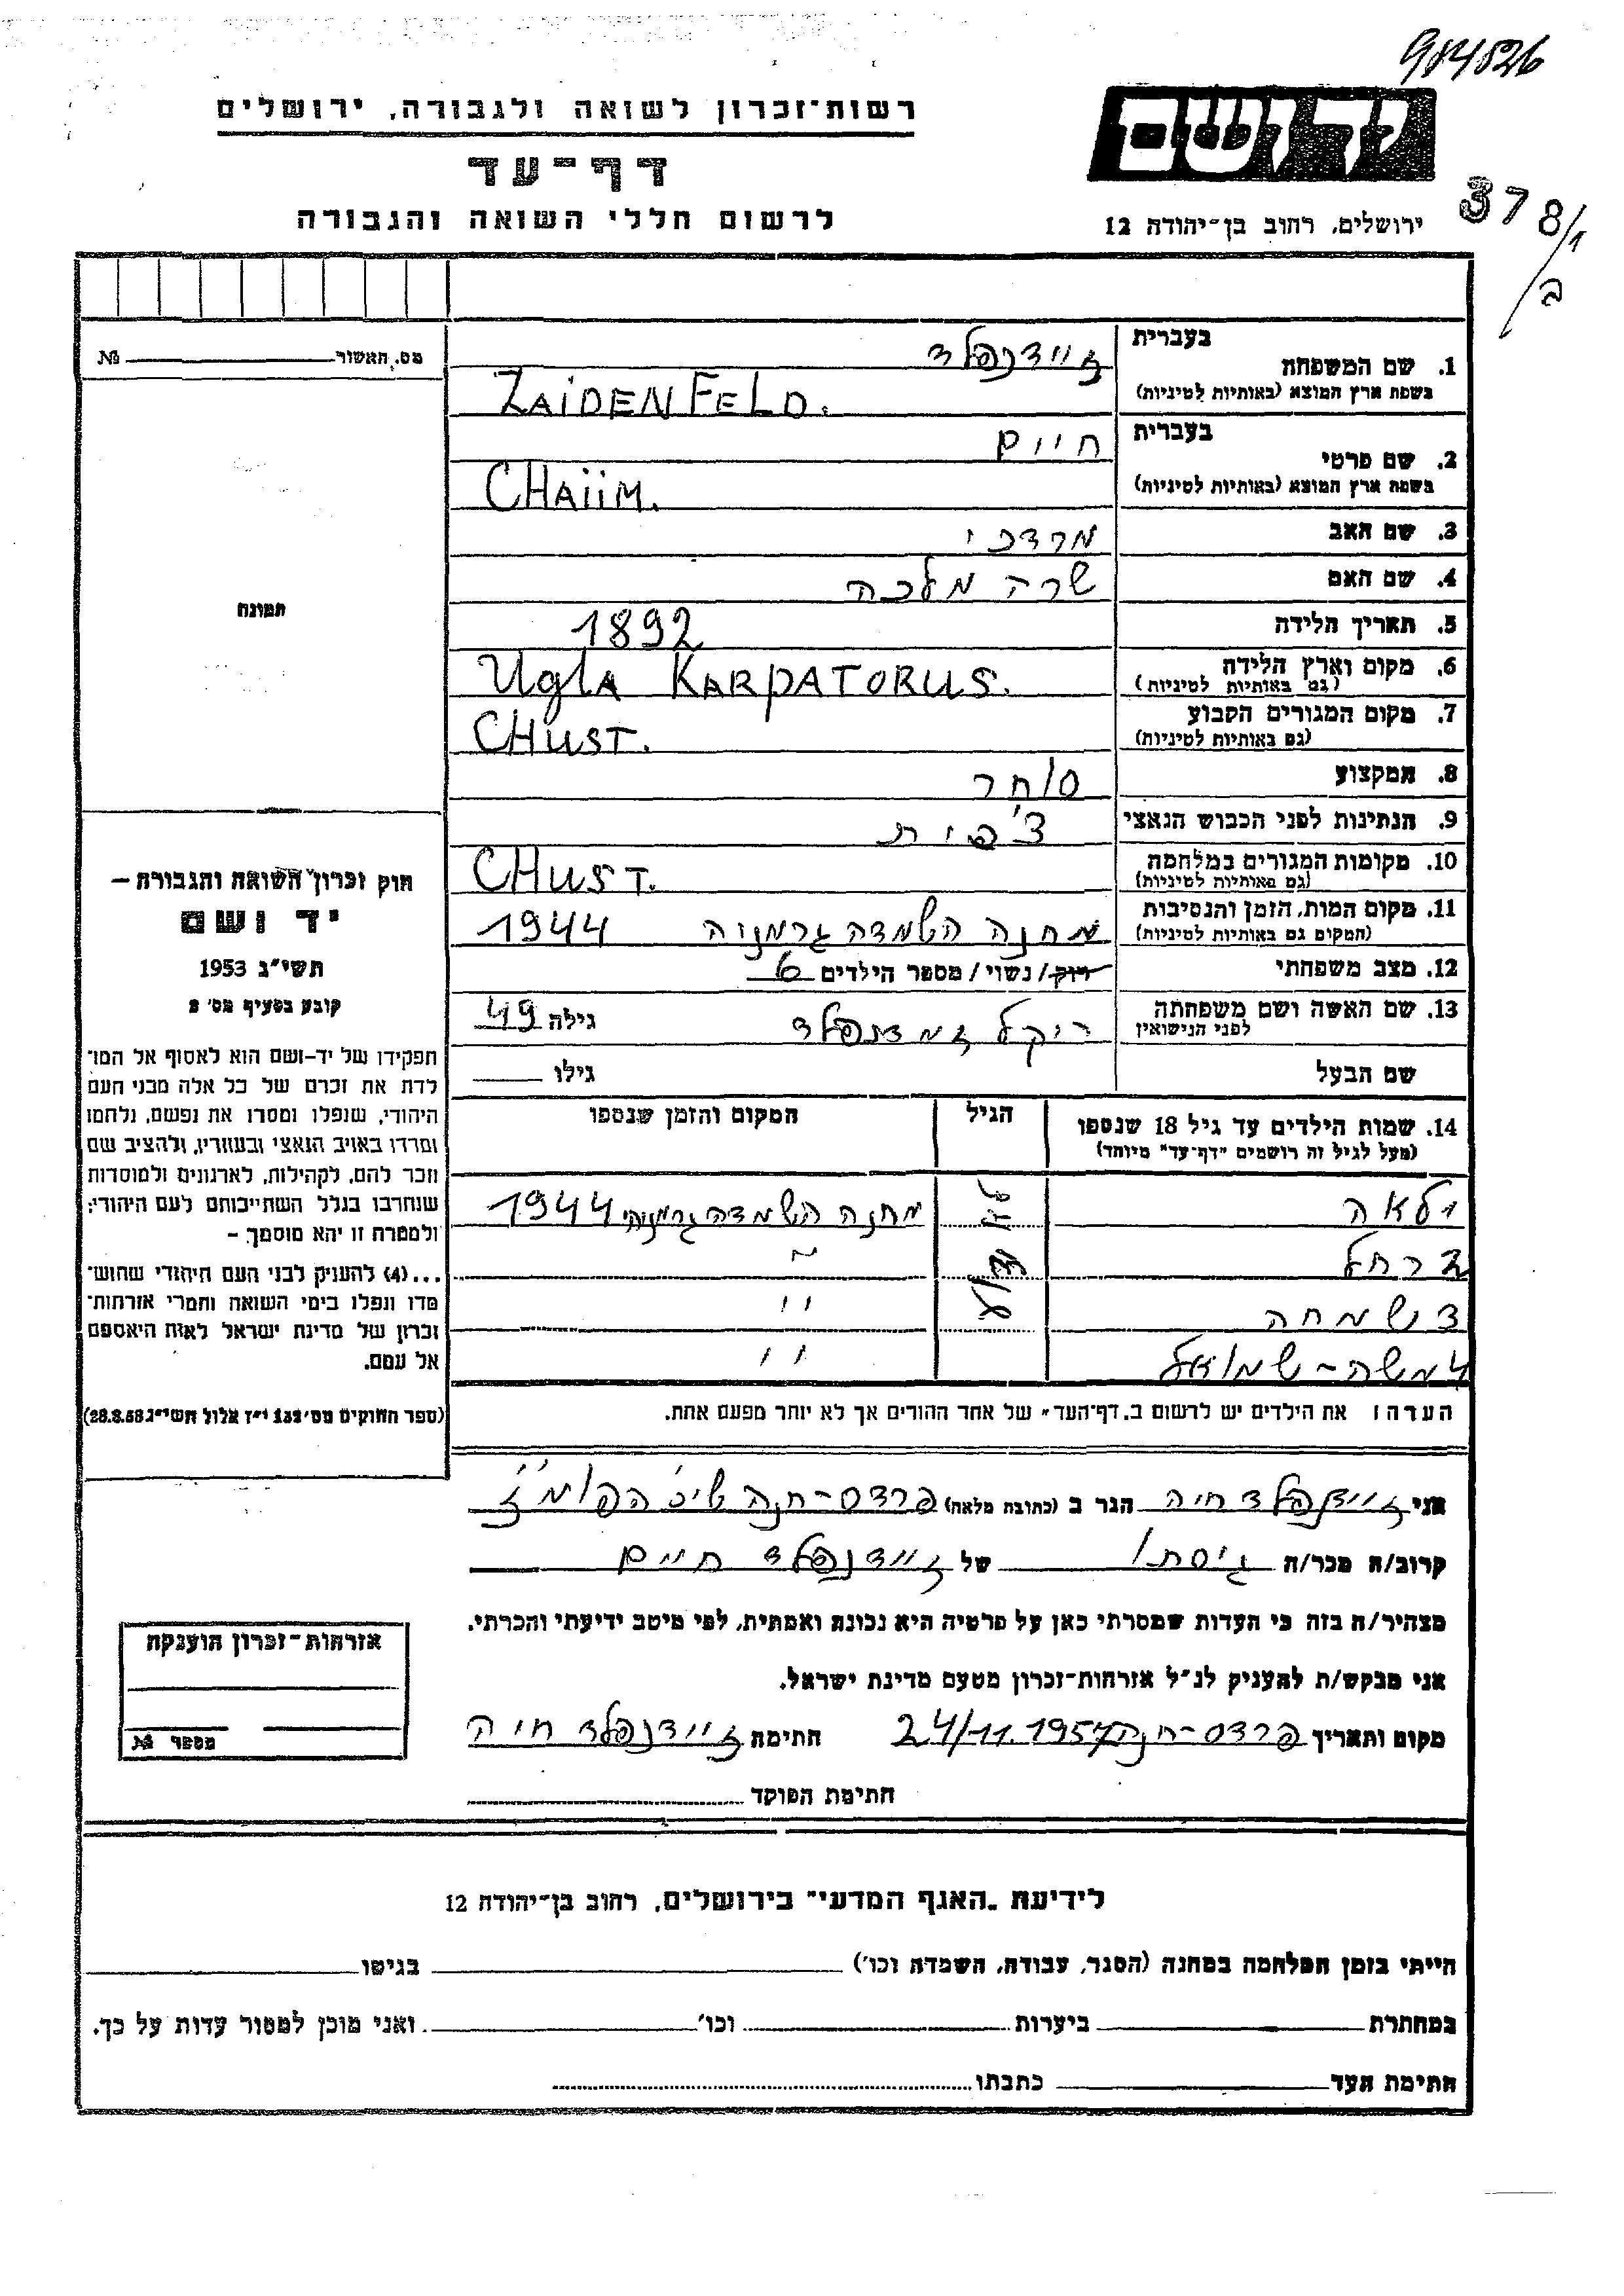 984826
רשות־זכרון לשואה ולגבורה, ירושלים
ידושם
דף־עד
לרשום חללי השואה והגבורה
ירושלים, רחוב בן־יהודה 12
378/1
ב
מס. האשור № 
1. שם המשפחה בעברית זיידנפלד
בשפת ארץ המוצא (באותיות לטיניות) ZAIDENFELD.
2. שם פרטי בעברית חיים
בשפת ארץ המוצא (באותיות לטיניות) CHAIIM.
3. שם האב מרדכי
4. שם האם שרה מלכה
5. תאריך הלידה 1892
6. מקום וארץ הלידה (גם באותיות לטיניות) Ugla KARPATORUS.
7. מקום המגורים הקבוע (גם באותיות לטיניות) CHUST.
8. המקצוע סוחר
9. הנתינות לפני הכבוש הנאצי צ'כית
10. מקומות המגורים במלחמה (גם באותיות לטיניות) CHUST.
11. מקום המות, הזמן והנסיבות (המקום גם באותיות לטיניות) מחנה השמדה גרמניה 1944
12. מצב משפחתי רווק/נשוי/מספר הילדים 6
13. שם האשה ושם משפחתה לפני הנישואין זיידנפלד גילה 49
שם הבעל גילו
14. שמות הילדים עד גיל 18 שנספו הגיל המקום והזמן שנספו
(מעל לגיל זה רושמים "דף־עד" מיוחד)
1 לאה לא ידוע מחנה השמדה גרמניה 1944
2 רחל "
3 שמחה "
4 משה-שמואל "
הערה: את הילדים יש לרשום ב"דף־העד" של אחד ההורים אך לא יותר מפעם אחת.
תמונה
חוק זכרון השואה והגבורה –
יד ושם
תשי"ג 1953
קובע בסעיף מס' 2
תפקידו של יד־ושם הוא לאסוף אל המו־
לדת את זכרם של כל אלה מבני העם
היהודי, שנפלו ומסרו את נפשם, נלחמו
ומרדו באויב הנאצי ובעוזריו, ולהציב שם
וזכר להם, לקהילות, לארגונים ולמוסדות
שנחרבו בגלל השתייכותם לעם היהודי;
ולמטרה זו יהא מוסמך –
...(4) להעניק לבני העם היהודי שהוש־
מדו ונפלו בימי השואה והמרי אזרחות־
זכרון של מדינת ישראל לאות היאספם
אל עמם.
(ספר החוקים מס' 132 י"ז אלול תשי"ג 28.8.53)
אני זיידנפלד חיה הגר ב (כתובת מלאה) פרדס-חנה
קרוב/ה מכר/ה גיסתו של זיידנפלד חיים
מצהיר/ה בזה כי העדות שמסרתי כאן על פרטיה היא נכונה ואמתית, לפי מיטב ידיעתי והכרתי.
אני מבקש/ת להעניק לנ"ל אזרחות־זכרון מטעם מדינת ישראל.
מקום ותאריך פרדס-חנה 24/11.1957 חתימה זיידנפלד חיה
חתימת הפוקד
אזרחות־זכרון הוענקה
מספר №
לידיעת "האגף המדעי" בירושלים, רחוב בן־יהודה 12
הייתי בזמן המלחמה במחנה (הסגר, עבודה, השמדה וכו') בגיטו
במחתרת ביערות וכו' ואני מוכן למסור עדות על כך.
חתימת העד כתבתו